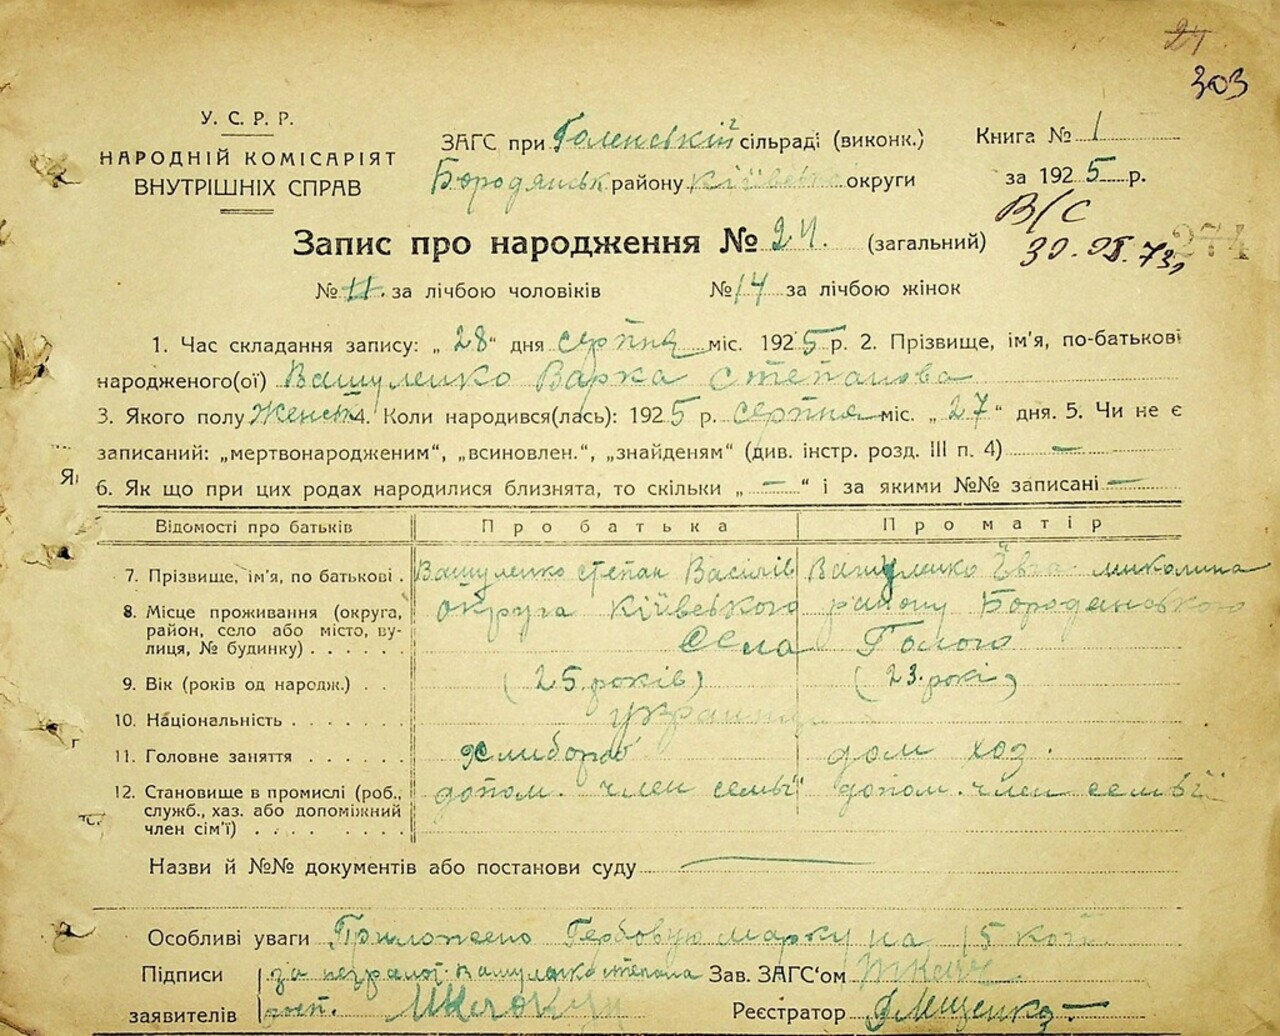 24
303
У. С. Р. Р.
НАРОДНІЙ КОМІСАРІЯТ
ВНУТРІШНІХ СПРАВ
ЗАГС при Голенській сільраді (виконк.)
Бородянськ району Київськ округи
Книга № 1
за 1925 р.
В/С
30. 73
274
Запис про народження № 24. (загальний)
№ 11. за лічбою чоловіків № 14 за лічбою жінок
1. Час складання запису: „ 28 “ дня серпня міс. 1925 р. 2. Прізвище, ім'я, по-батькові
народженого(ої) Вашуленко Варка Степанова
3. Якого полу Женськ 4. Коли народився(лась): 1925 р. серпня міс. „ 27 “ дня. 5. Чи не є
записаний: „мертвонародженим“, „всиновлен.“, „знайденям“ (див. інстр. розд. III п. 4) —
6. Як що при цих родах народилися близнята, то скільки „ — “ і за якими №№ записані —
Відомості про батьків Про батька Про матір
7. Прізвище, ім'я, по батькові . Вашуленко степан Василів Вашуленко Ївга миколина
8. Місце проживання (округа, округа Київського району Бородянського
район, село або місто, ву-
лиця, № будинку) . . . . . . села Голого
9. Вік (років од народж.) . . (25 років) (23 рокі)
10. Національність . . . . . . . українц
11. Головне заняття . . . . . . хлибороб дом хоз.
12. Становище в промислі (роб., допом. член семьї допом. член семьї
служб., хаз. або допоміжний
член сім'ї) . . . . . . .
Назви й №№ документів або постанови суду —
Особливі уваги Приложено Гербовую марку на 15 коп
Підписи за неграмот. Вашуленко степана Зав. ЗАГС'ом Ткач
заявителів росп. Реєстратор Мищенко